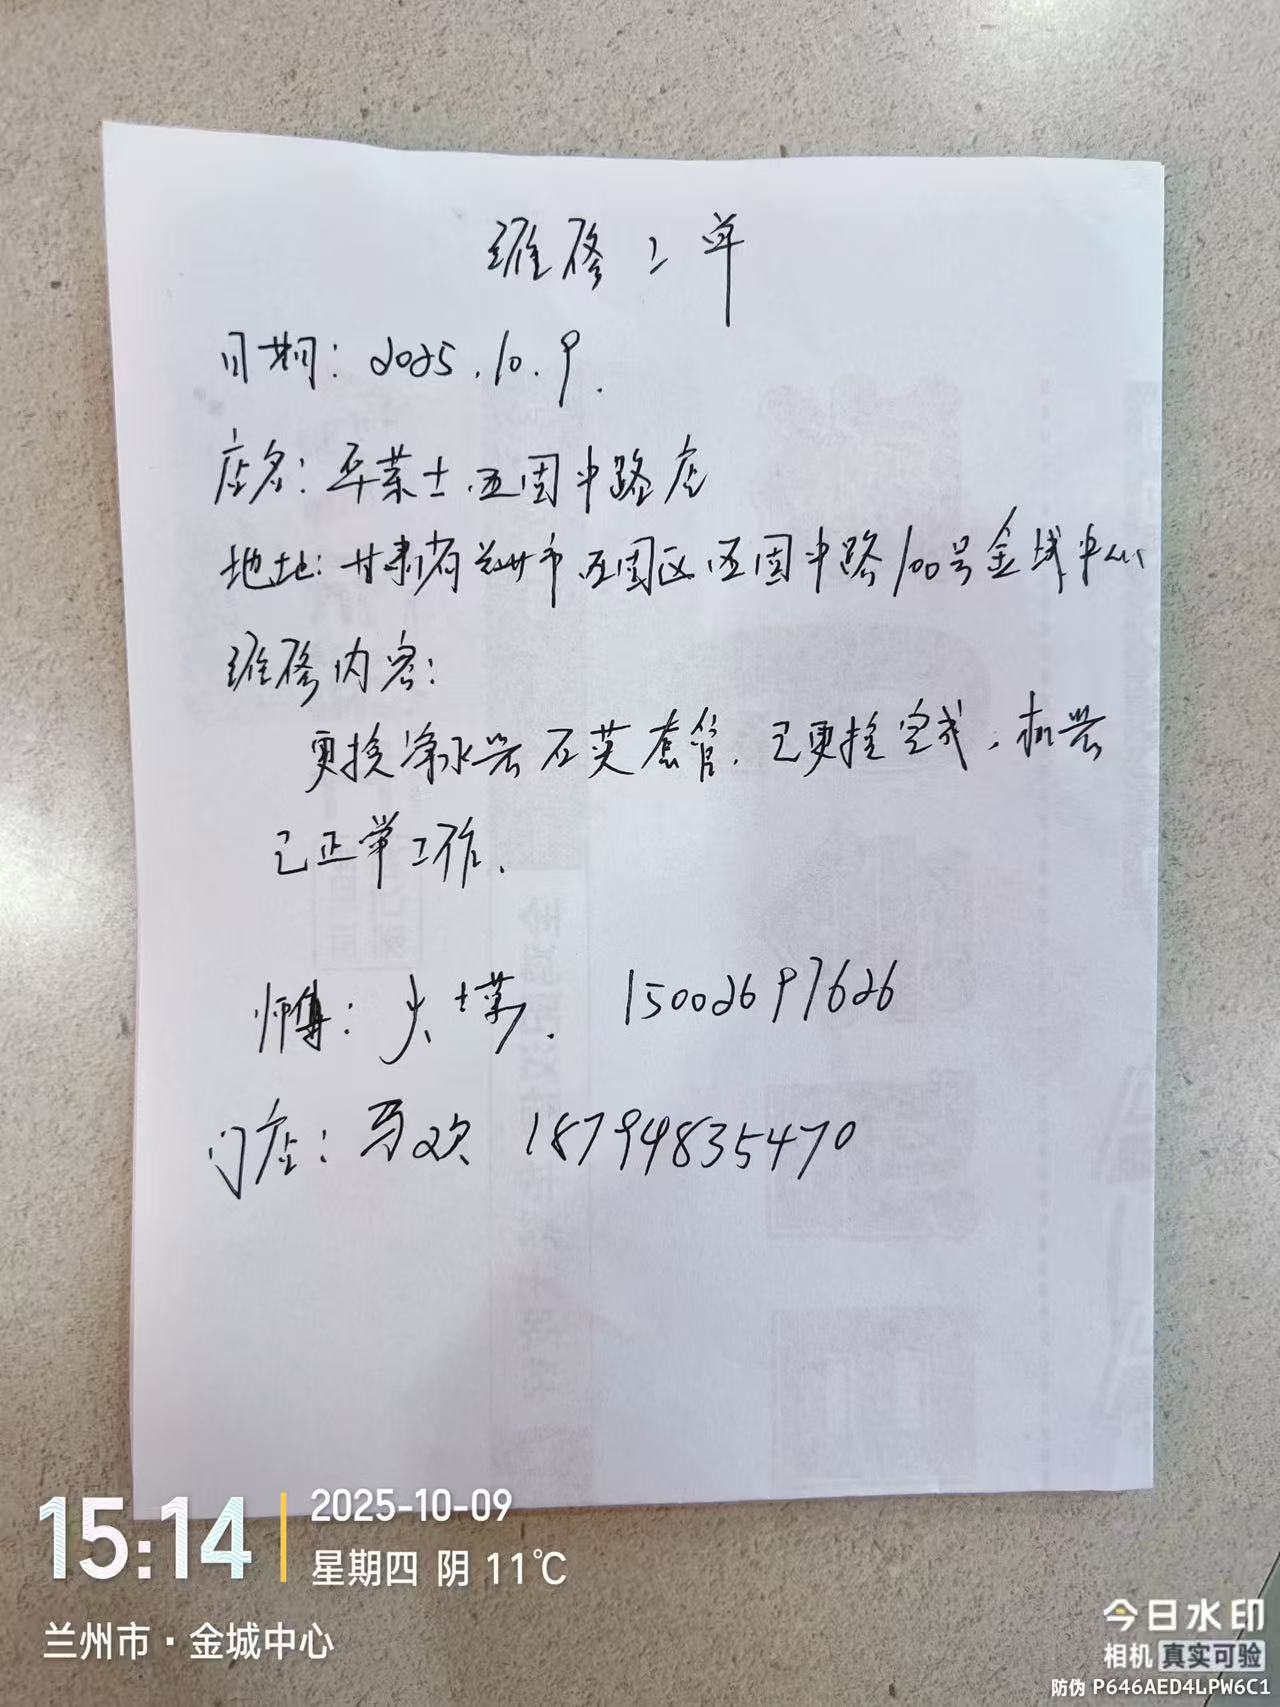 维修工单
日期：2025.10.9.
店名：华莱士.西固中路店
地址：甘肃省兰州市西固区西固中路100号金城中心
维修内容：
更换净水器石英套管.已更换完成,机器
已正常工作.
师傅： 15002697626
门店：马欢 18794835470
15:14
2025-10-09
星期四 阴 11℃
兰州市·金城中心
今日水印
相机 真实可验
防伪 P646AED4LPW6C1